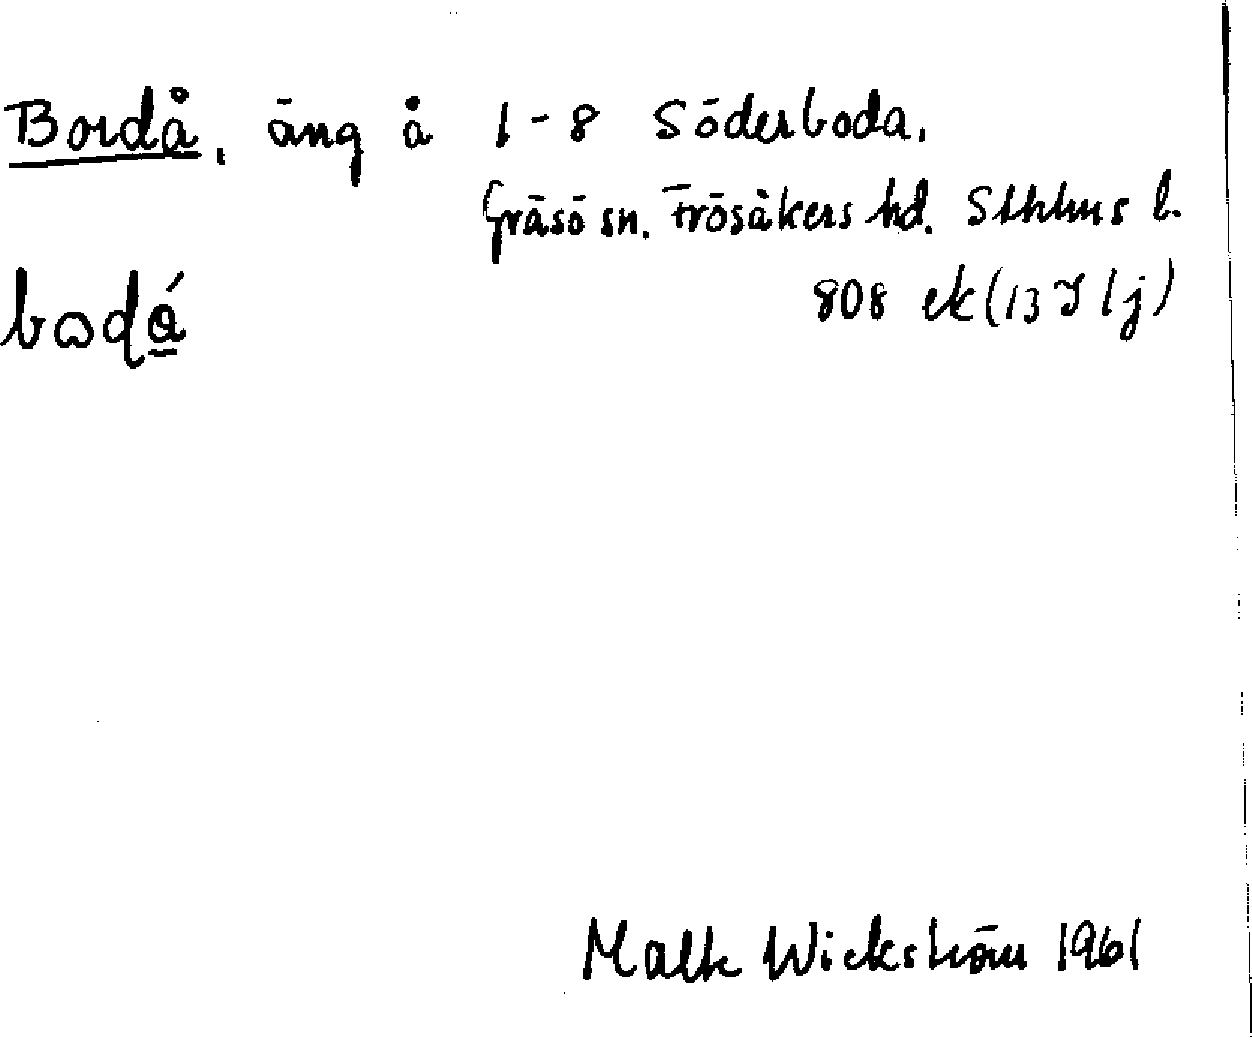 Bordå, äng å 1-8 Söderboda,
Gräsö sn. Frösåkers hd. Sthlms l.
808 ek (13 I 1j)
Malte Wickström 1961